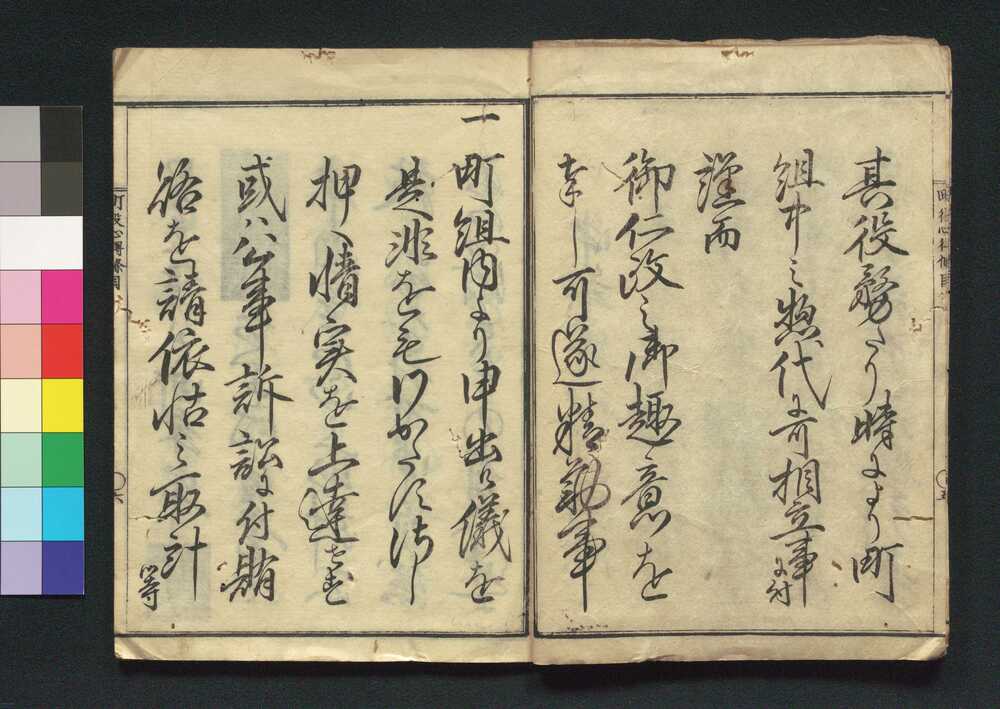 其役務たり時により町
組中之惣代に可相立事に付
謹而
御仁政之御趣意を
奉し可遂精勤事
一町組内より申出る儀を
是非をも
押へ情実を上達せず
或ハ公事訴訟に付賄
賂を請依怙之取計等
町役心得条目